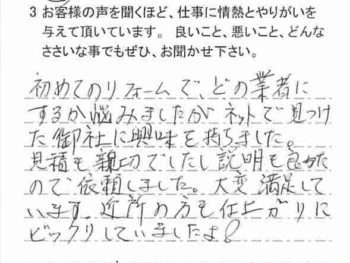 3 お客様の声を聞くほど、仕事に情熱とやりがいを
与えて頂いています。 良いこと、悪いこと、どんな
ささいな事でもぜひ、お聞かせ下さい。
初めてのリフォームで、どの業者に
するか悩みましたがネットで見つけ
た御社に興味を持ちました。
見積も親切でしたし説明も良かた
ので依頼しました。大変満足して
います。近所の方も仕上がりに
ビックリしていましたよ!